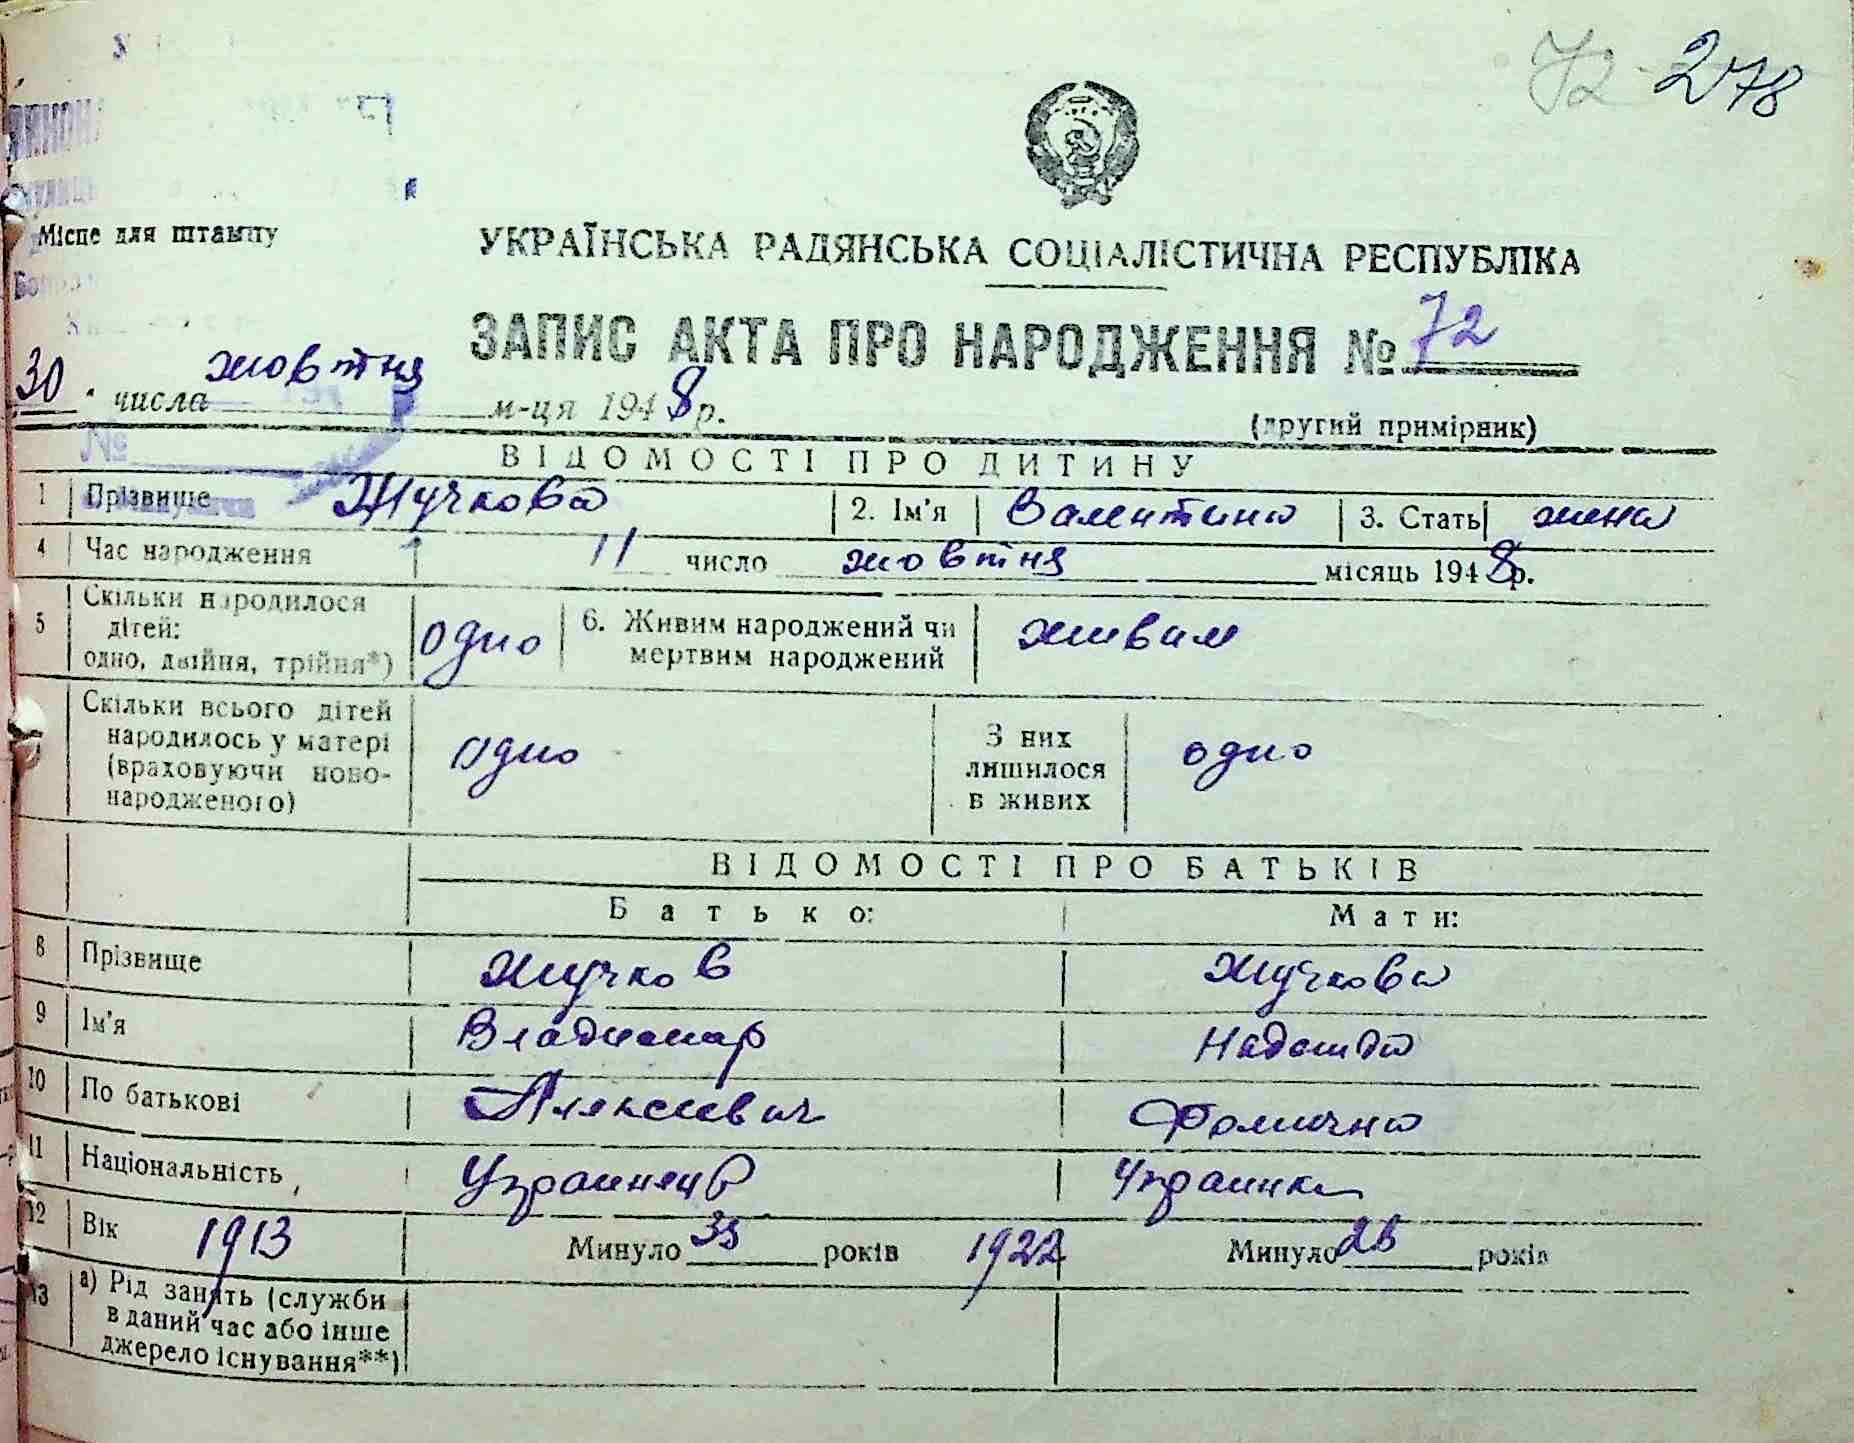 72 278
Місце для штампу
УКРАЇНСЬКА РАДЯНСЬКА СОЦІАЛІСТИЧНА РЕСПУБЛІКА
ЗАПИС АКТА ПРО НАРОДЖЕННЯ № 72
30 числа жовтня м-ця 1948 р.
(другий примірник)
№
ВІДОМОСТІ ПРО ДИТИНУ
1 Прізвище Жучкова 2. Ім'я Валентина 3. Стать жена
4 Час народження 11 число жовтня місяць 1948 р.
5 Скільки народилося дітей: одно, двійня, трійня*) одно 6. Живим народжений чи мертвим народжений живим
Скільки всього дітей народилось у матері (враховуючи ново-народженого) одно З них лишилося в живих одно
ВІДОМОСТІ ПРО БАТЬКІВ
Батько: Мати:
8 Прізвище Жучков Жучкова
9 Ім'я Владимар Надежда
10 По батькові Алексеевич Фомична
11 Національність Украинец Украинка
12 Вік 1913 Минуло 35 років 1922 Минуло 26 років
13 а) Рід занять (служби в даний час або інше джерело існування**)